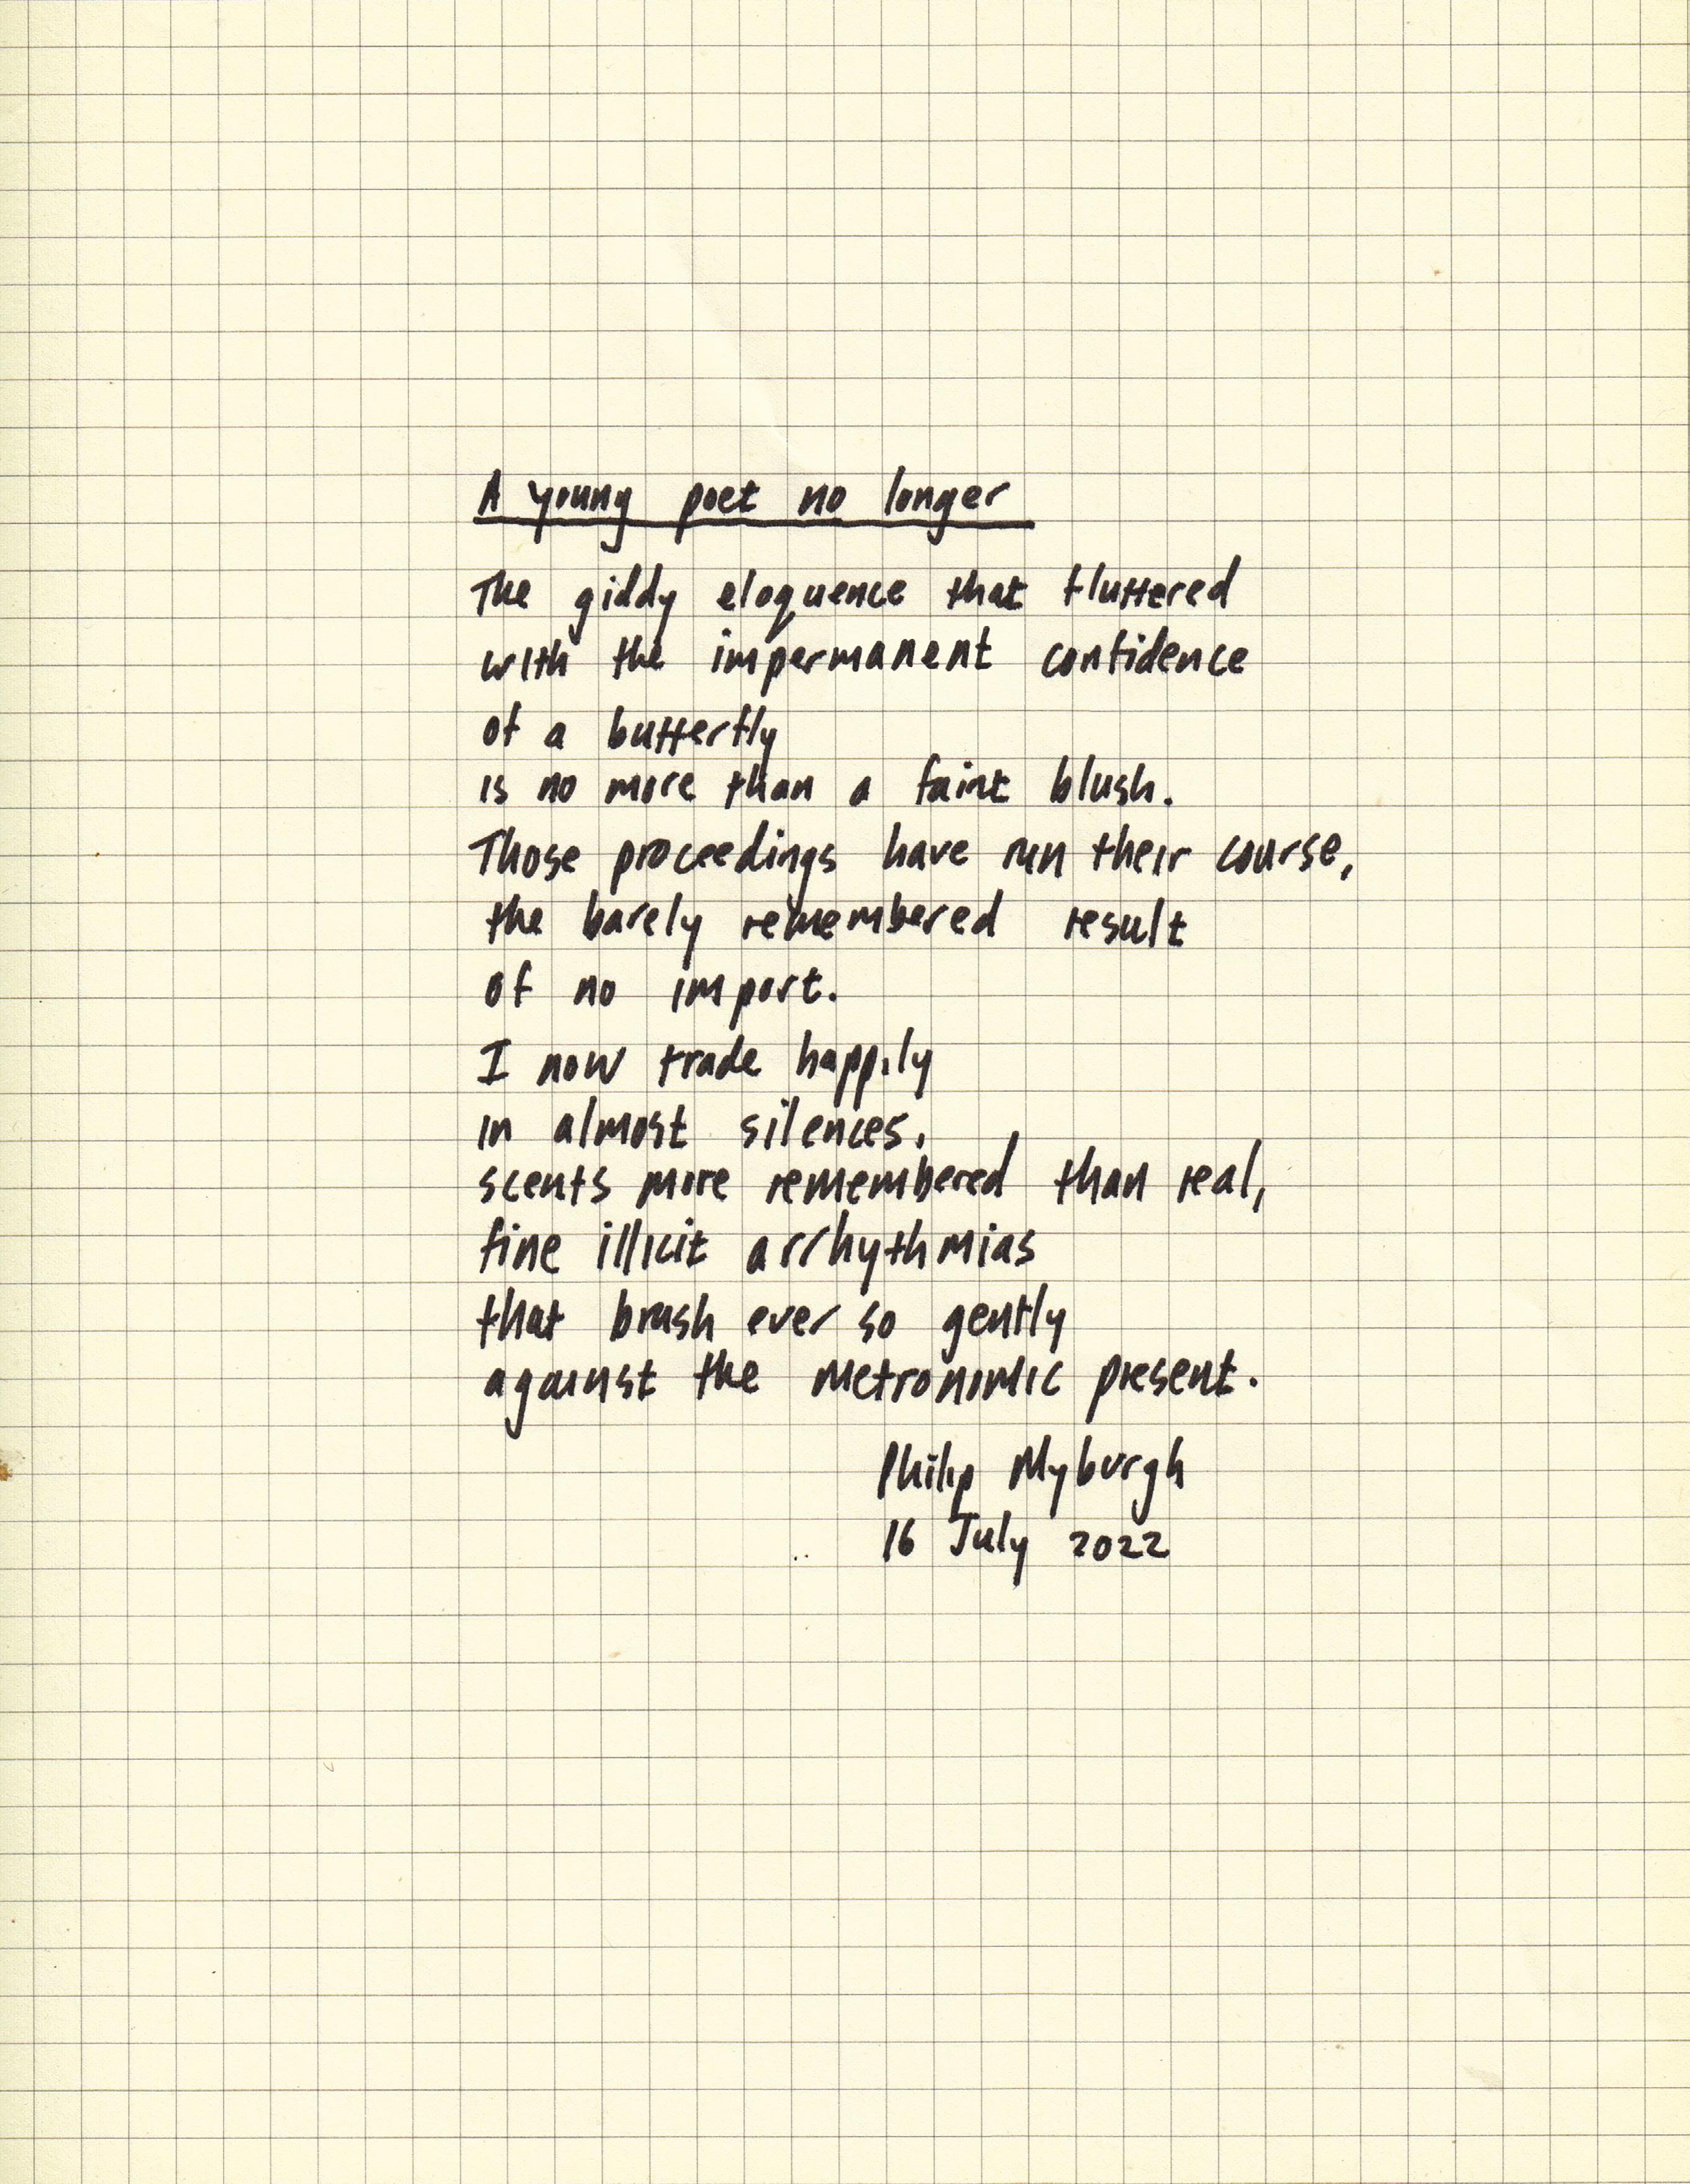 A young poet no longer
The giddy eloquence that fluttered
with the impermanent confidence
of a butterfly
is no more than a faint blush.
Those proceedings have run their course,
the barely remembered result
of no import.
I now trade happily
in almost silences,
scents more remembered than real,
fine illicit arrhythmias
that brush ever so gently
against the metronomic present.
Philip Myburgh
16 July 2022